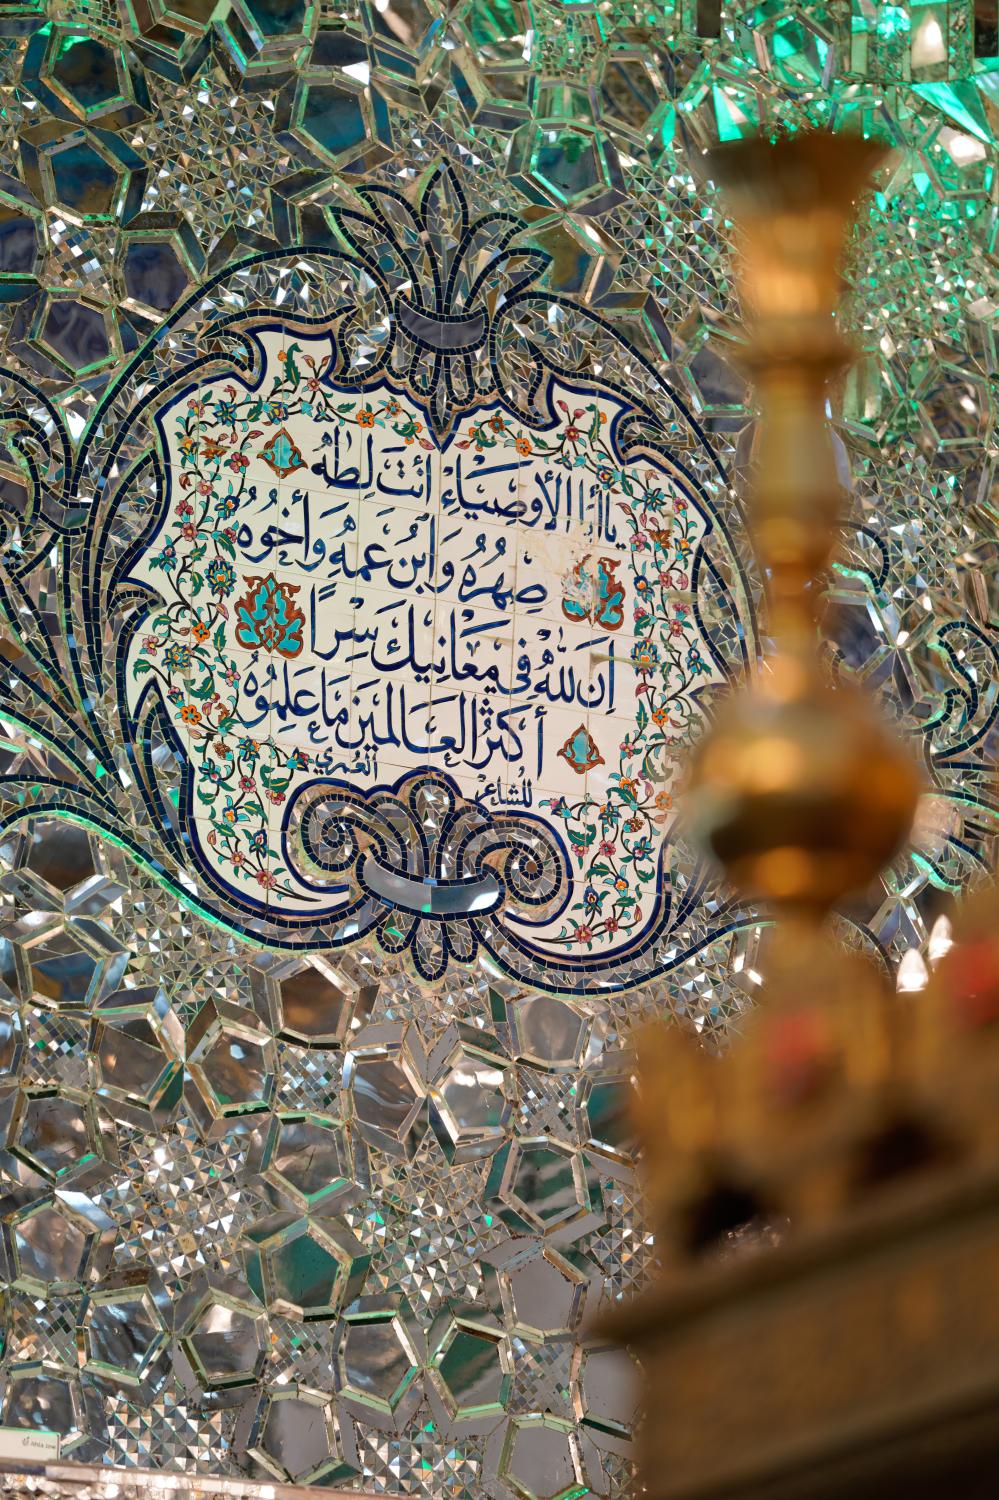 يا أبا الأوصياءِ أنتَ لِطٰهٰ
صِهرُهُ وَابنُ عَمهِ وأخُوهُ
إن للّٰهِ في مَعَانيكَ سِرًا
أكثرُ العَالمينَ مَا عَلِمُوهُ
للشاعر العُمري